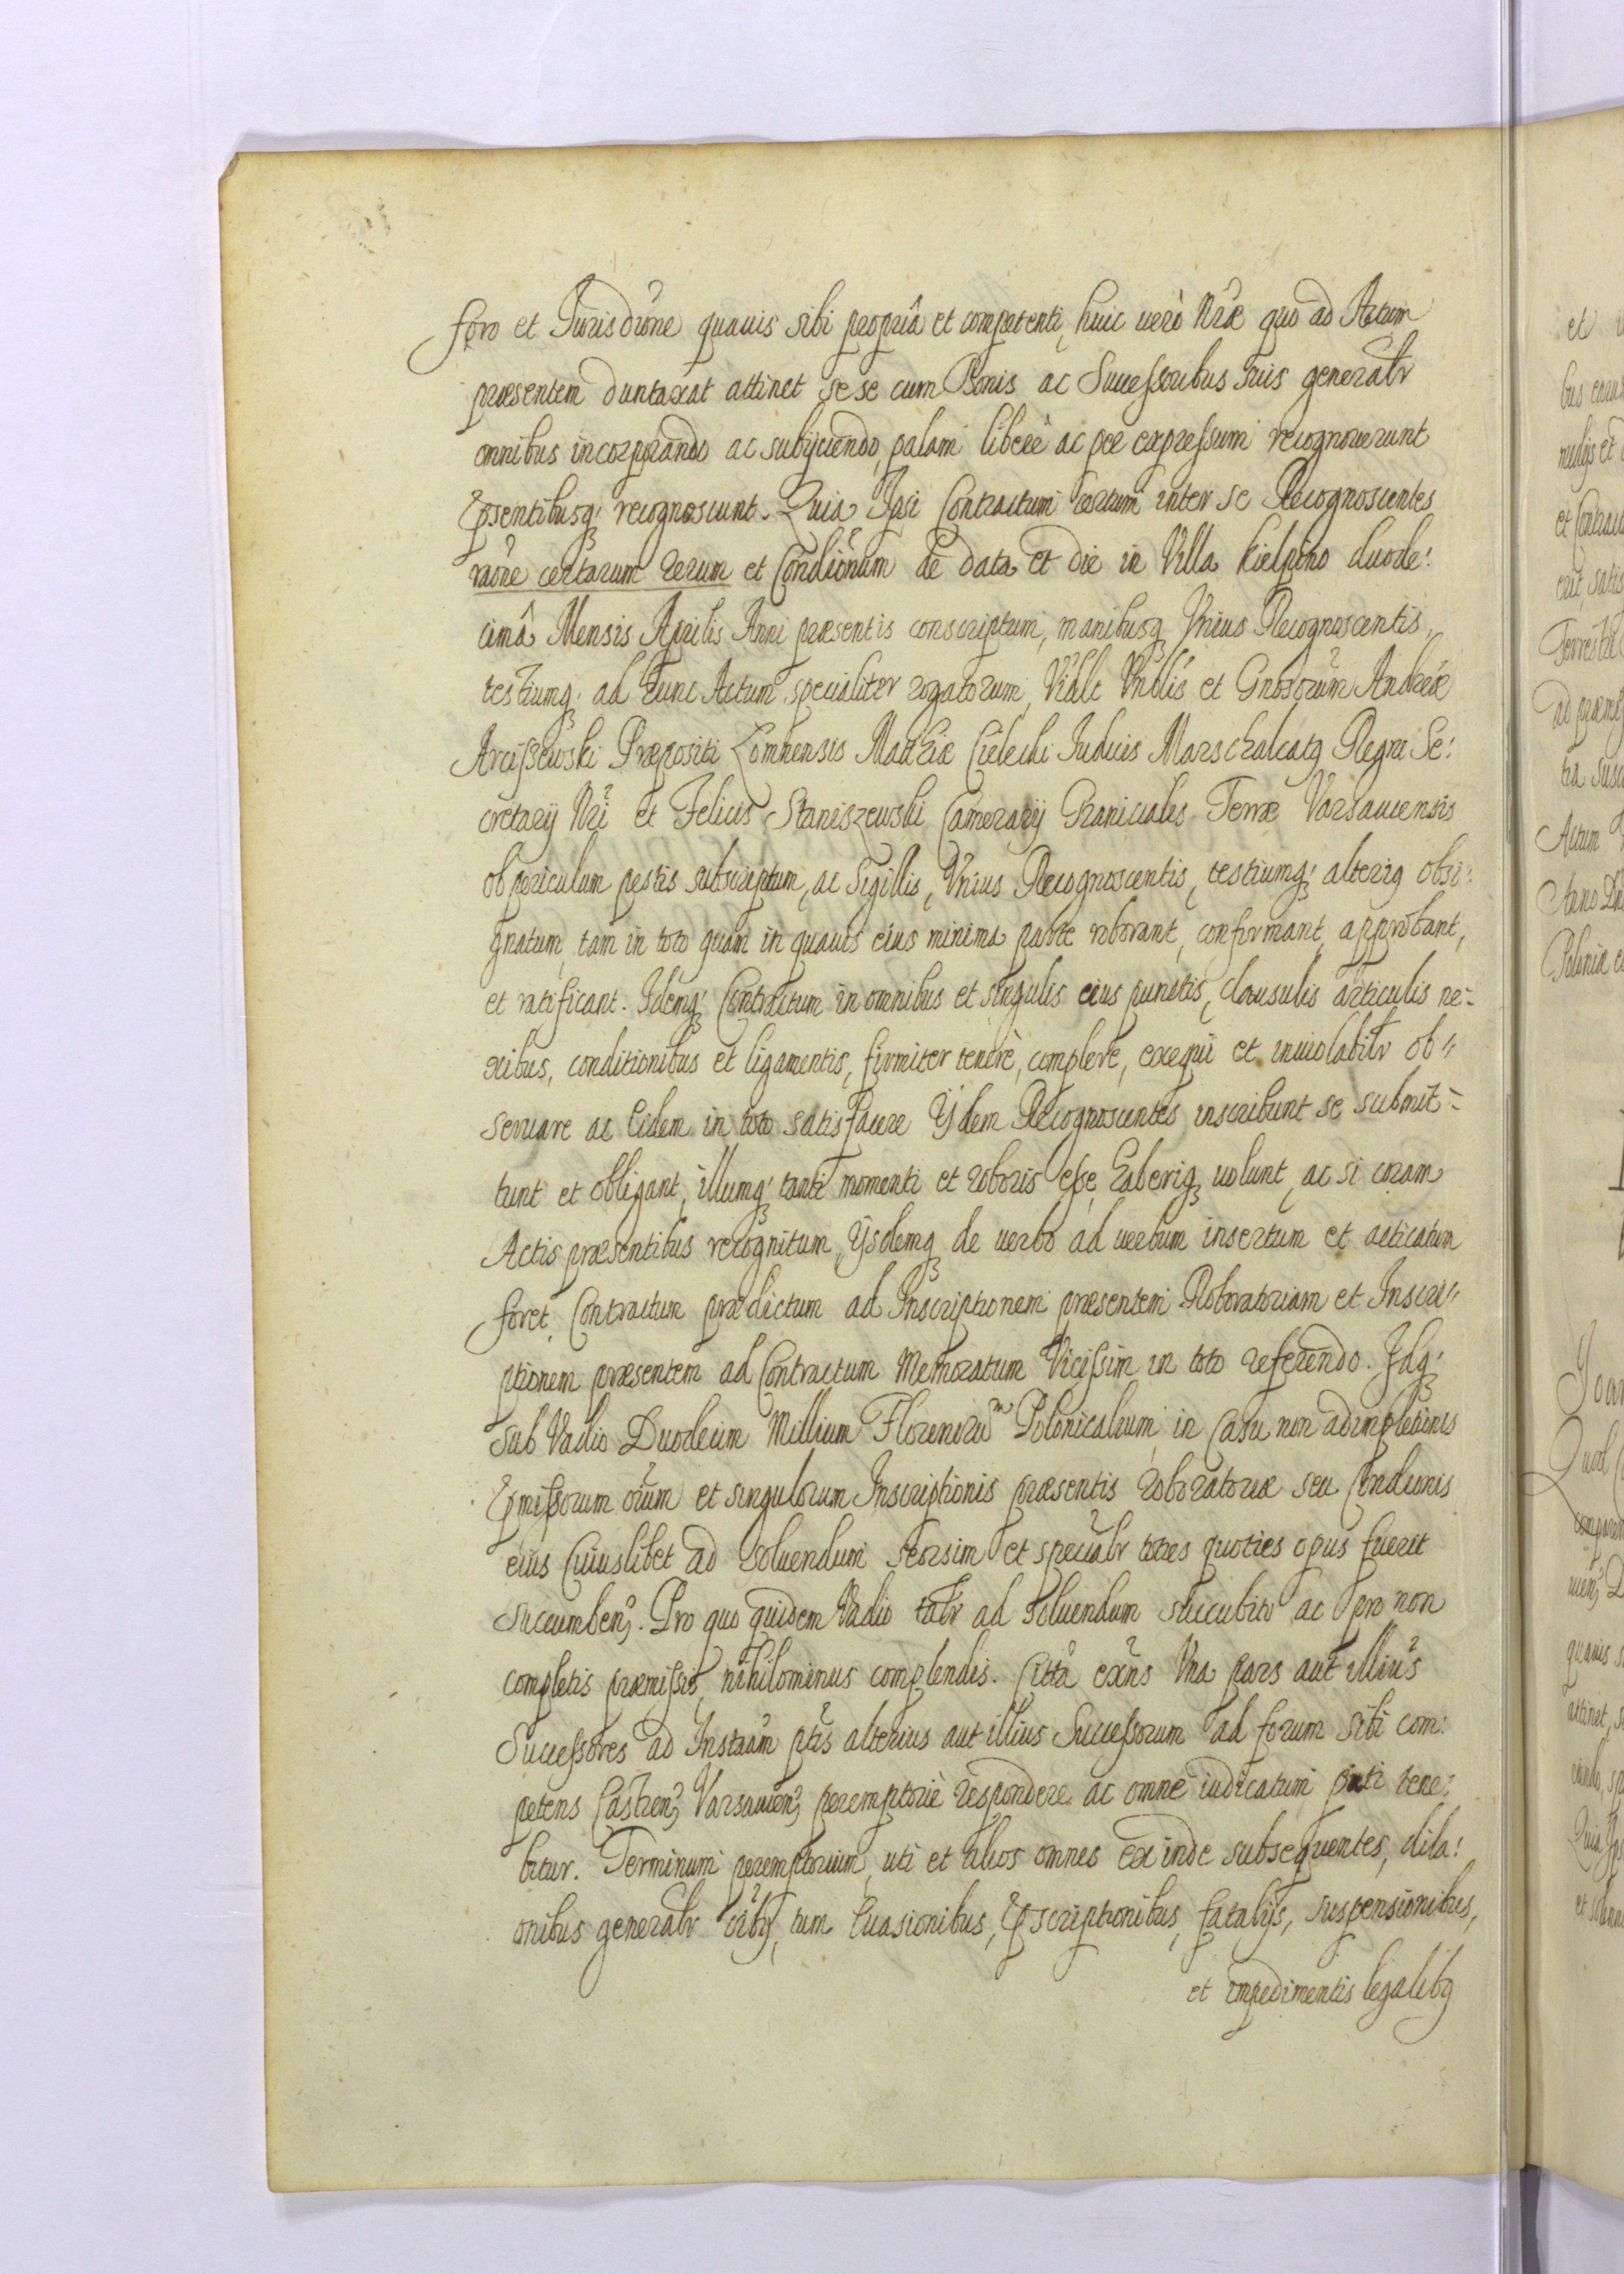 foro et Jurisdrõne quauis sibi propriâ et competenti, huic uerò Nrãe quo ad Actum
præsentem duntaxat attinet se se cum Bonis ac Successoribus suis generalr̃
omnibus incorporando ac subijciendo, palam liberè ac per expressum recognouerunt
Psentibusq; recognoscunt. Quia Ipsi Contractum certum inter se Recognoscentes
raõne certarum rerum et Condiõnum de data et die in Villa Kielpino duode:
cimâ Mensis Aprilis Anni præsentis conscriptum, manibusq; Vnius Recognoscentis,
testiumq; ad hunc Actum specialiter rogatorum, et Gnosorum Andreæ
Arcissewski Præpositi Lomnensis Matthiæ Cielecki Iudicis Marschalcatq Regni Se:
cretarij Nri et Felicis Staniszewski Camerarij Granicialis Terræ Varsauiensis
ob periculum pestis subscriptum, ac Sigillis, Vnius Recognoscentis, testiumq; alteriq obsi:
gnatum, tam in toto quam in quauis eius minima parte roborant, confirmant, approbant,
et ratificant. Idemq; Contractum in omnibus et singulis eius punctis, clausulis articulis ne=
xibus, conditionibus et ligamentis, firmiter tenere, complere, exequi et inuiolabilr̃ ob"
seruare ac eidem in toto satisfacere Ijdem Recognoscentes inscribunt se submit=
tunt et obligant, illumq; tanti momenti et roboris esse, haberiq; uolunt, ac si coram
Actis præsentibus recognitum, Ijsdemq; de uerbo ad uerbum insertum et acticatum
foret, Contractum prædictum ad Inscriptionem præsentem Roboratoriam et Inscri"
ptionem præsentem ad Contractum Memoratum Vicissim in toto referendo. Idq;
sub Vadio Duodecim Millium Florenoru^m Polonicalium, in Casu non adimpletionis
Pmissorum oĩum et singulorum Inscriptionis præsentis roboratoriæ seu Condionis
eius Cuiuslibet ad soluendum seorsim et specialr̃ toties quoties opus fuerit
succumben;. Pro quo quidem Vadio talr̃ ad soluendum succubito ac pro non
completis præmissis, nihilominus complendis. Citta exñs Vna pars aut illius
Successores ad Instãam ptis alterius aut illius Successorum ad forum sibi com:
petens Castren; Varsauien; peremptoriè respondere ac omne iudicatum pati tene:
bitur. Terminum peremptorium, uti et alios omnes ex inde subsequentes, dila:
onibus generalr̃ oibq, tum Euasionibus, Pscriptionibus, fatalijs, suspensionibus,
et impedimentis legalibq